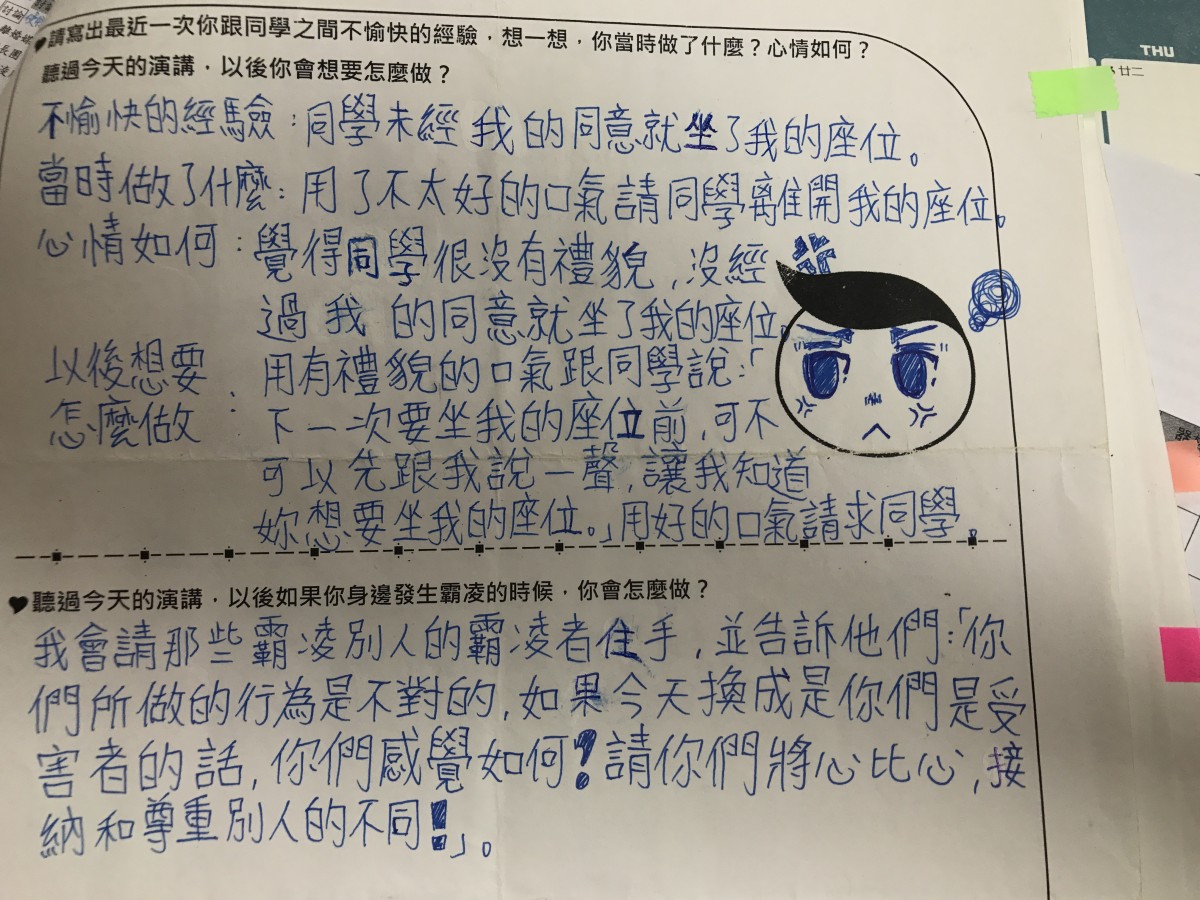 討論
♥請寫出最近一次你跟同學之間不愉快的經驗，想一想，你當時做了什麼？心情如何？
聽過今天的演講，以後你會想要怎麼做？
不愉快的經驗：同學未經我的同意就坐了我的座位。
當時做了什麼：用了不太好的口氣請同學離開我的座位。
心情如何：覺得同學很沒有禮貌，沒經
過我的同意就坐了我的座位。
以後想要怎麼做：用有禮貌的口氣跟同學說：「
下一次要坐我的座位前，可不
可以先跟我說一聲，讓我知道
妳想要坐我的座位。」用好的口氣請求同學。
♥聽過今天的演講，以後如果你身邊發生霸凌的時候，你會怎麼做？
我會請那些霸凌別人的霸凌者住手，並告訴他們：「你
們所做的行為是不對的，如果今天換成是你們是受
害者的話，你們感覺如何？請你們將心比心，接
納和尊重別人的不同！」。
THU
廿二